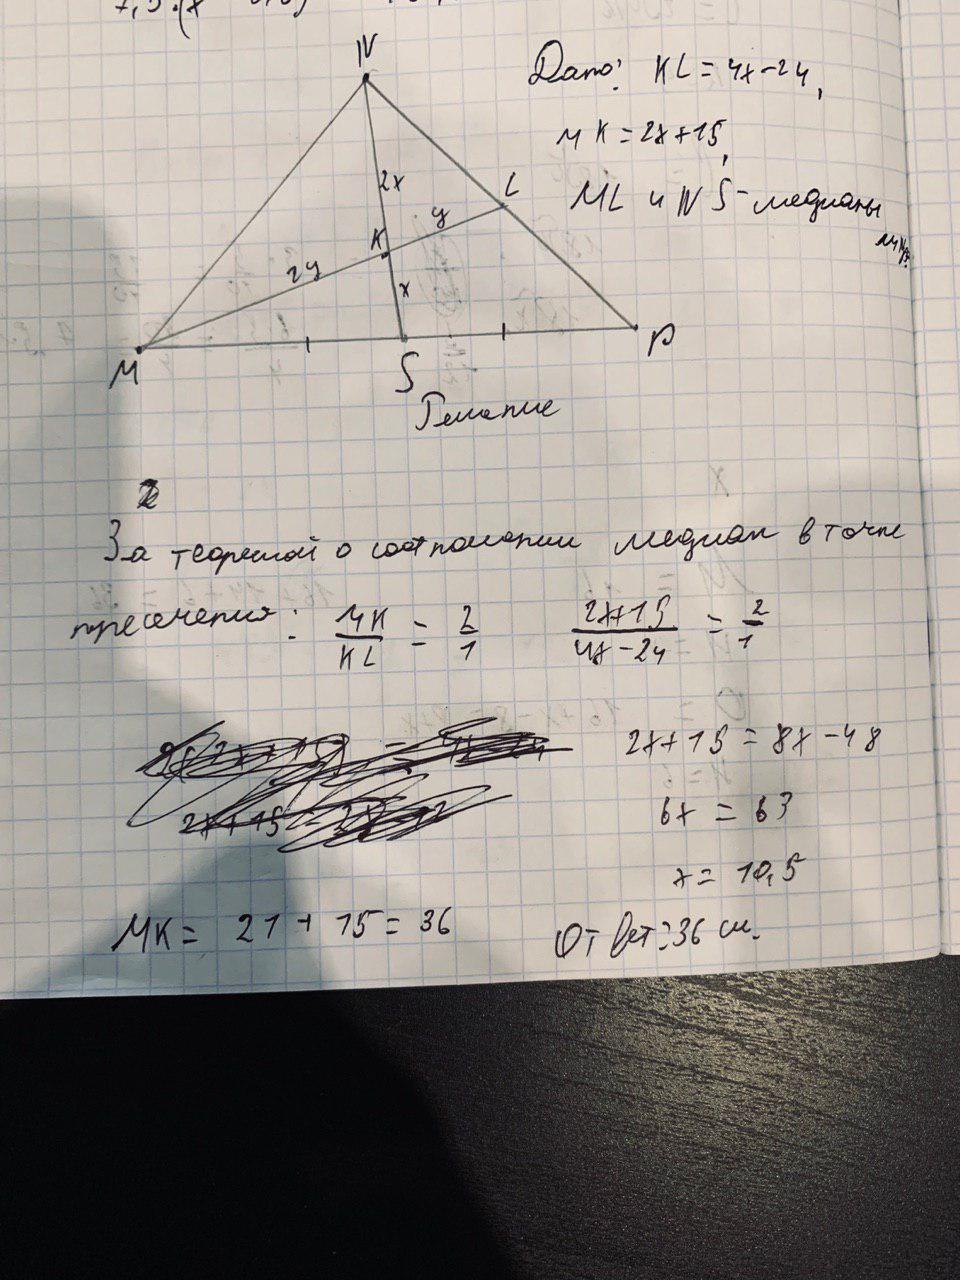 N
Дано: KL = 4x-24,
MK = 2x+15,
ML и NS - медианы
2x
L
y
K
2y
x
M
S
P
Решение
2
За теоремой о соотношении медиан в точке
пресечения: MK/KL = 2/1 (2x+15)/(4x-24) = 2/1
2x+15 = 8x-48
2x+15
6x = 63
x = 10,5
MK = 21 + 15 = 36
Ответ: 36 см.